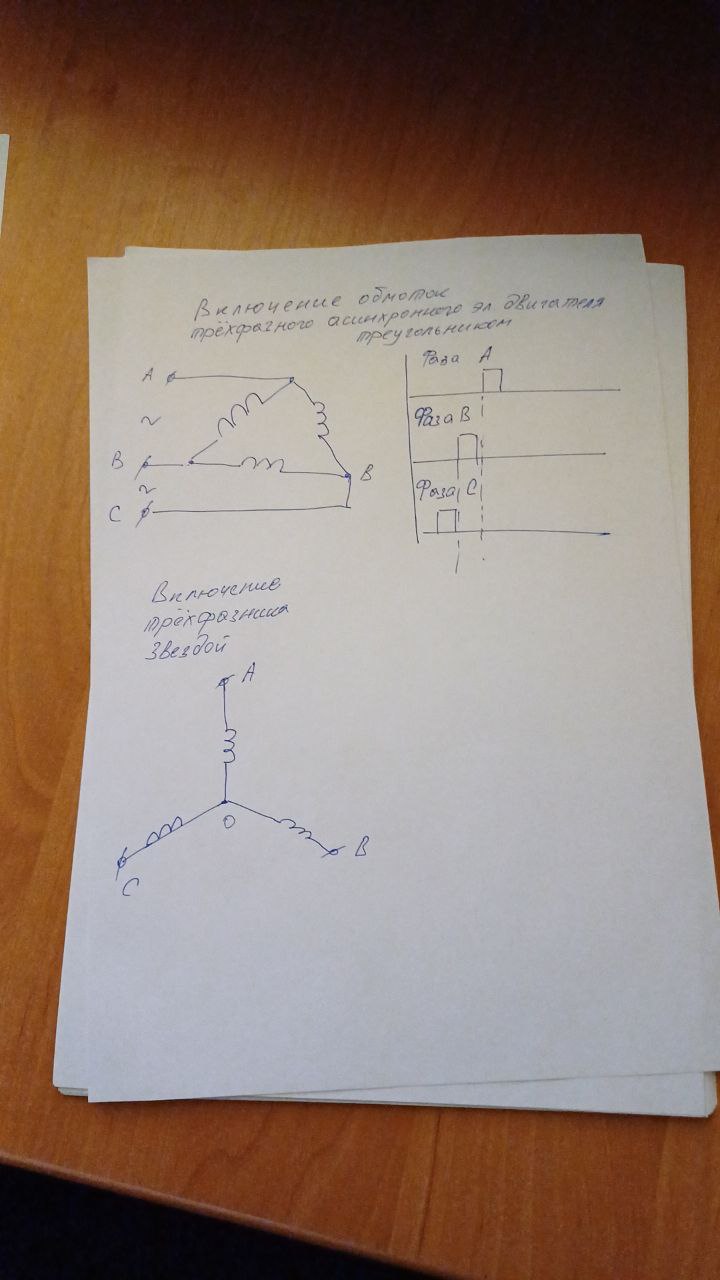 Включение обмоток
трёхфазного асинхронного эл. двигателя
треугольником
A
~
B
~
C
B
Фаза A
Фаза B
Фаза C
Включение
трёхфазника
Звездой
A
O
B
C